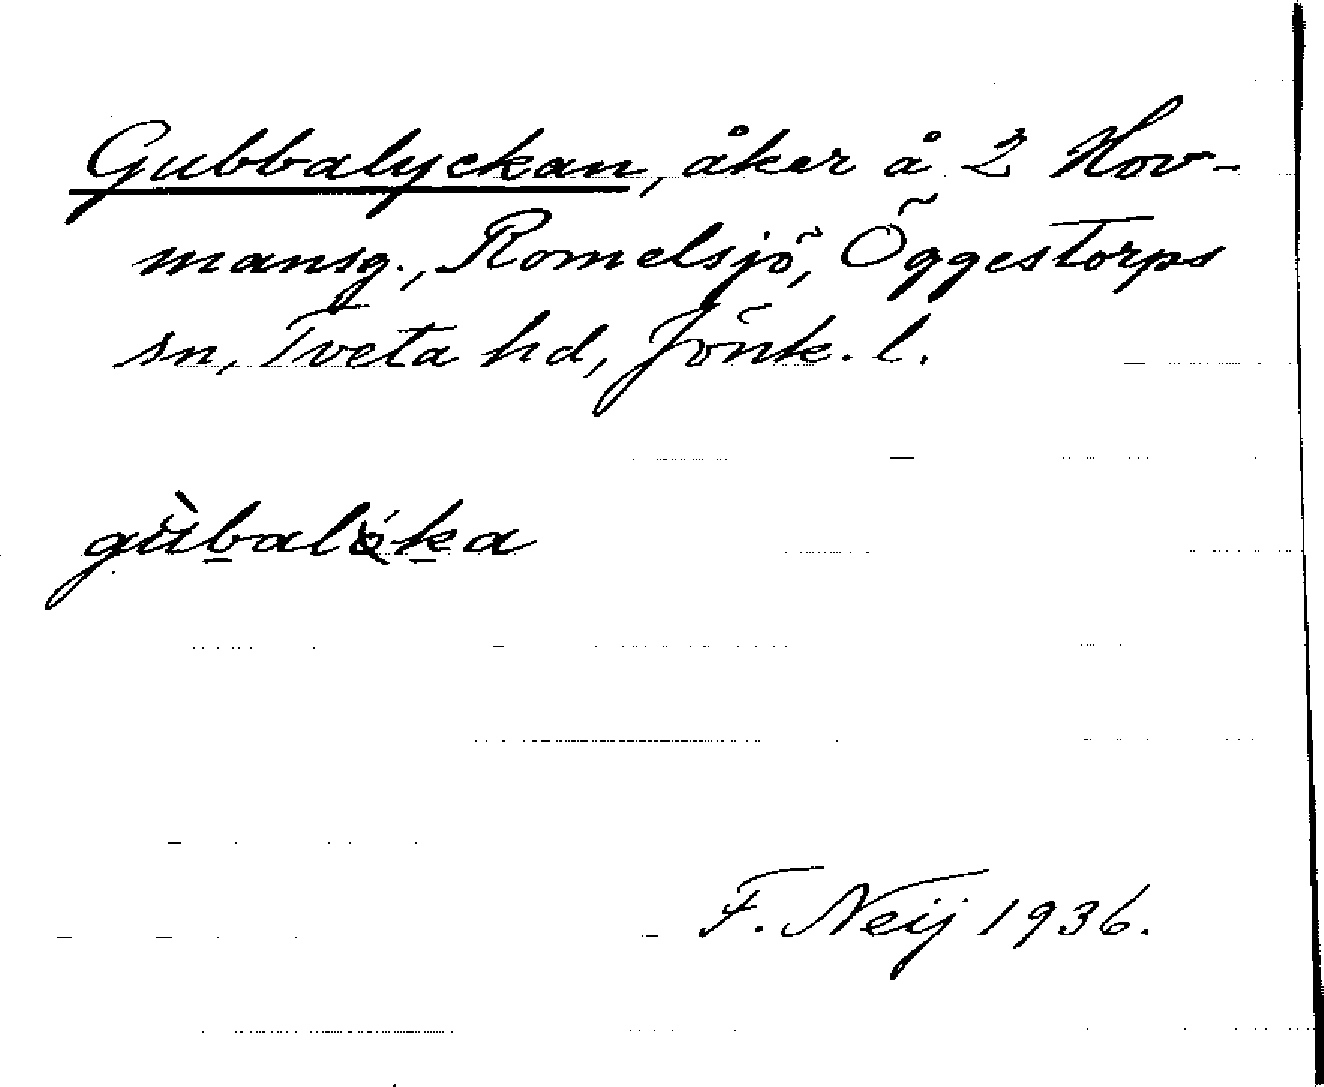 Gubbalyckan, åker å 2 Hov-
mansg., Romelsjö, Öggestorps
sn, Tveta hd, Jönk. l.
F. Neij 1936.